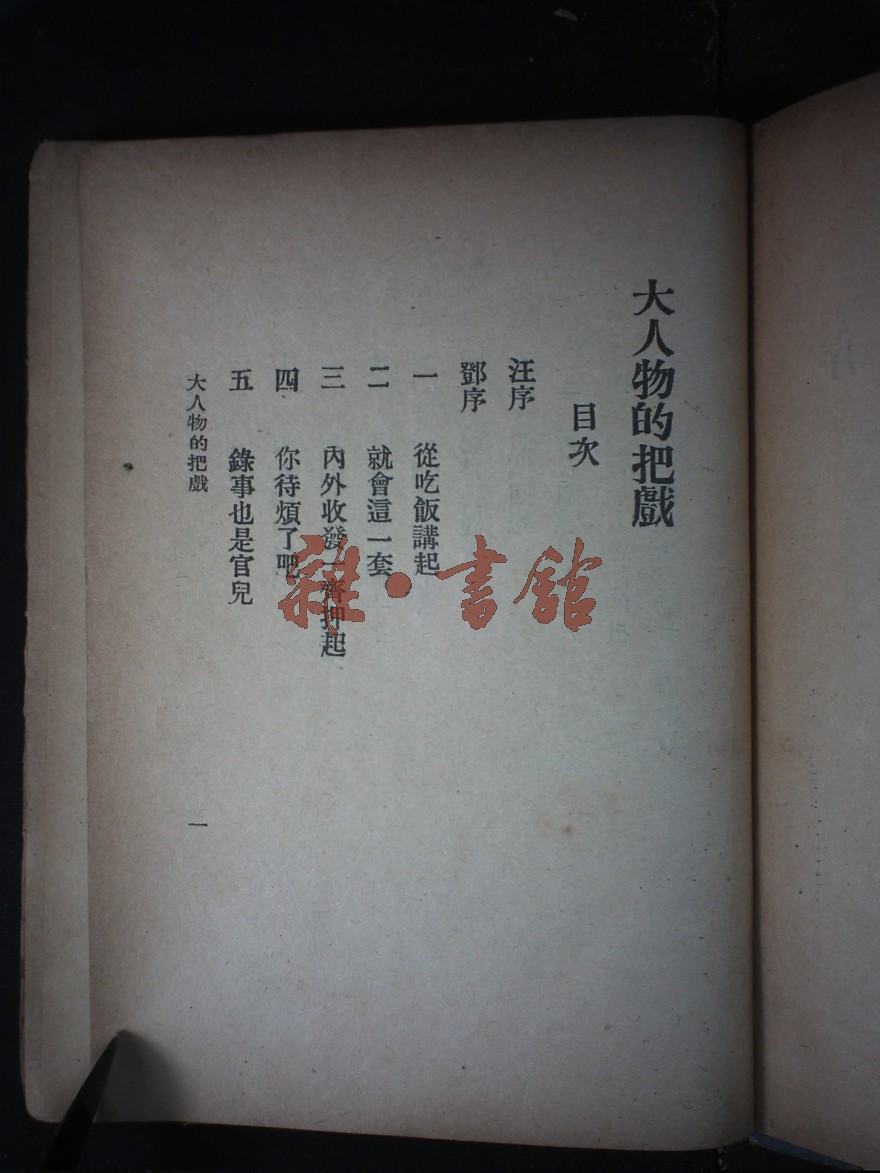 大人物的把戲
目次
汪序
鄧序
一 從吃飯講起
二 就會這一套
三 內外收發一齊押起
四 你待煩了吧
五 錄事也是官兒
大人物的把戲
一
雜·書館